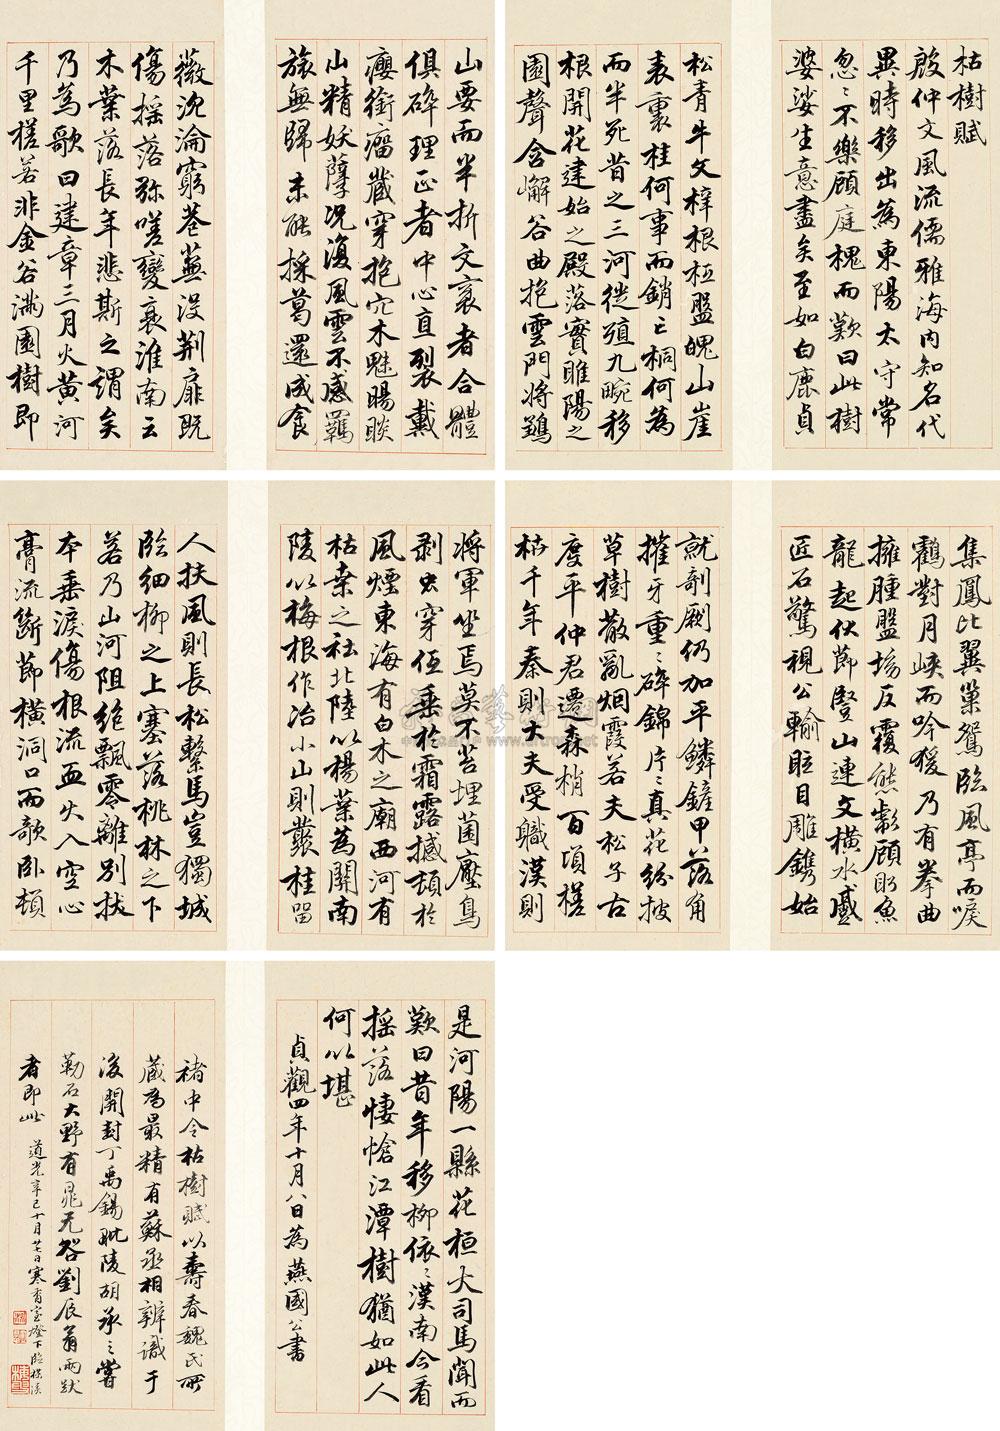 枯樹賦
殷仲文風流儒雅海內知名代
異時移出為東陽太守常
忽〻不樂顧庭槐而歎曰此樹
婆娑生意盡矣至如白鹿貞
松青牛文梓根柢盤魄山崖
表裏桂何事而銷亡桐何為
而半死昔之三河徙殖九畹移
根開花建始之殿落實睢陽之
園聲含嶰谷曲抱雲門將鶵
集鳳比翼巢鴛臨風亭而唳
鶴對月峽而吟猨乃有拳曲
擁腫盤坳反覆熊彪顧盼魚
龍起伏節豎山連文橫水蹙
匠石驚視公輸眩目雕鐫始
就剞劂仍加平鱗鏟甲落角
摧牙重〻碎錦片〻真花紛披
草樹散亂烟霞若夫松子古
度平仲君遷森梢百頃槎
枿千年秦則大夫受職漢則
將軍坐焉莫不苔埋菌壓鳥
剥虫穿低垂於霜露撼頓於
風煙東海有白木之廟西河有
枯桒之社北陸以楊葉為關南
陵以梅根作冶小山則叢桂留
人扶風則長松繫馬豈獨城
臨細柳之上塞落桃林之下
若乃山河阻絕飄零離別拔
本垂淚傷根流血火入空心
膏流斷節橫洞口而欹臥頓
山要而半折文衺者合體
俱碎理正者中心直裂戴
癭銜瘤藏穿抱穴木魅暘睒
山精妖孽況復風雲不感羈
旅無歸未能採葛還成食
薇沉淪窮巷蕪沒荊扉既
傷搖落弥嗟變衰淮南云
木葉落長年悲斯之謂矣
乃為歌曰建章三月火黃河
千里槎若非金谷滿園樹即
是河陽一縣花桓大司馬聞而
歎曰昔年移柳依〻漢南今看
搖落悽愴江潭樹猶如此人
何以堪
貞觀四年十月八日為燕國公書
褚中令枯樹賦以壽春魏氏所
藏為最精有蘇丞相辨識于
後開封丁禹錫毗陵胡承之嘗
勒石大野有晁无咎劉辰翁兩跋
者即此 道光辛巳十月廿七日寒香室燈下臨